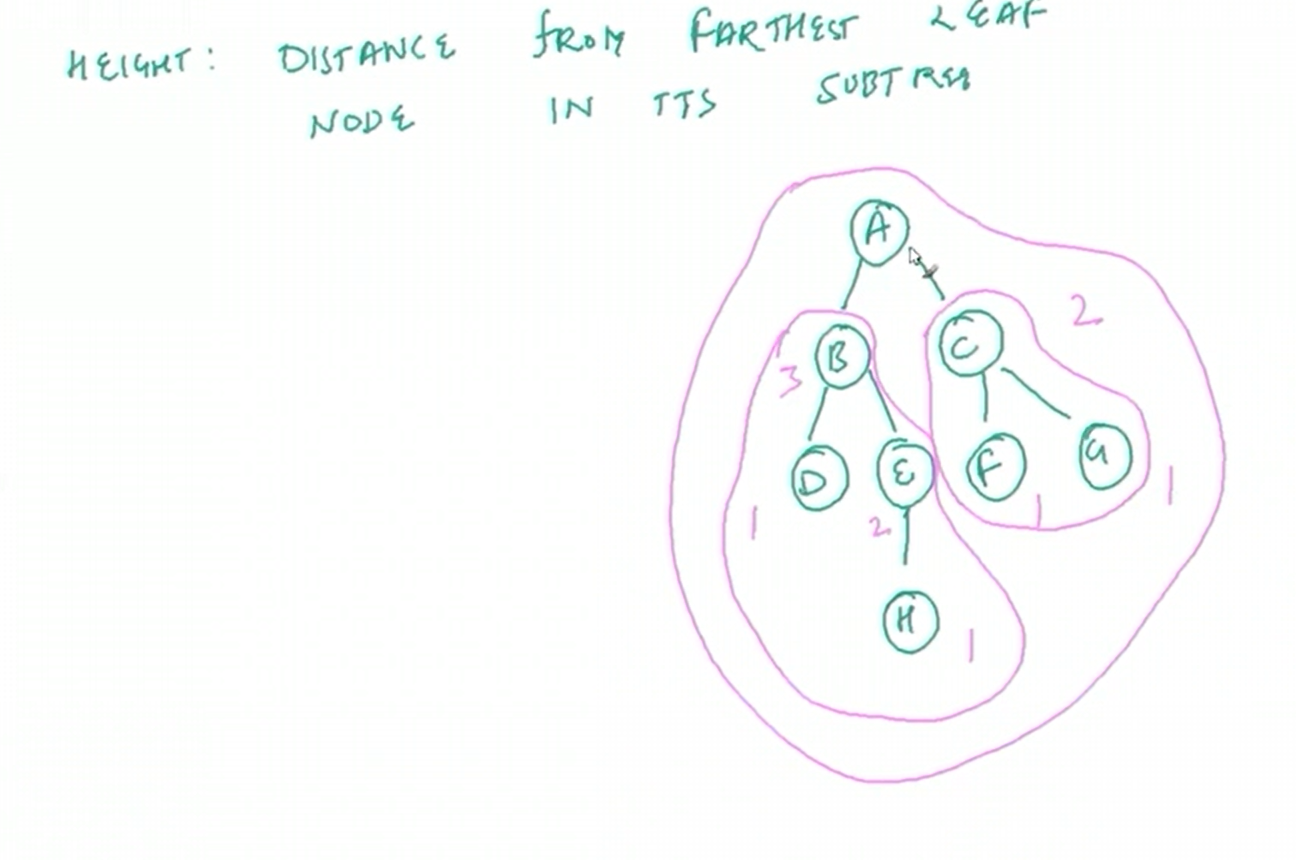 HEIGHT: DISTANCE FROM FARTHEST LEAF
NODE IN ITS SUBTREE
A
2
B
C
3
D
E
F
G
1
2
1
1
H
1